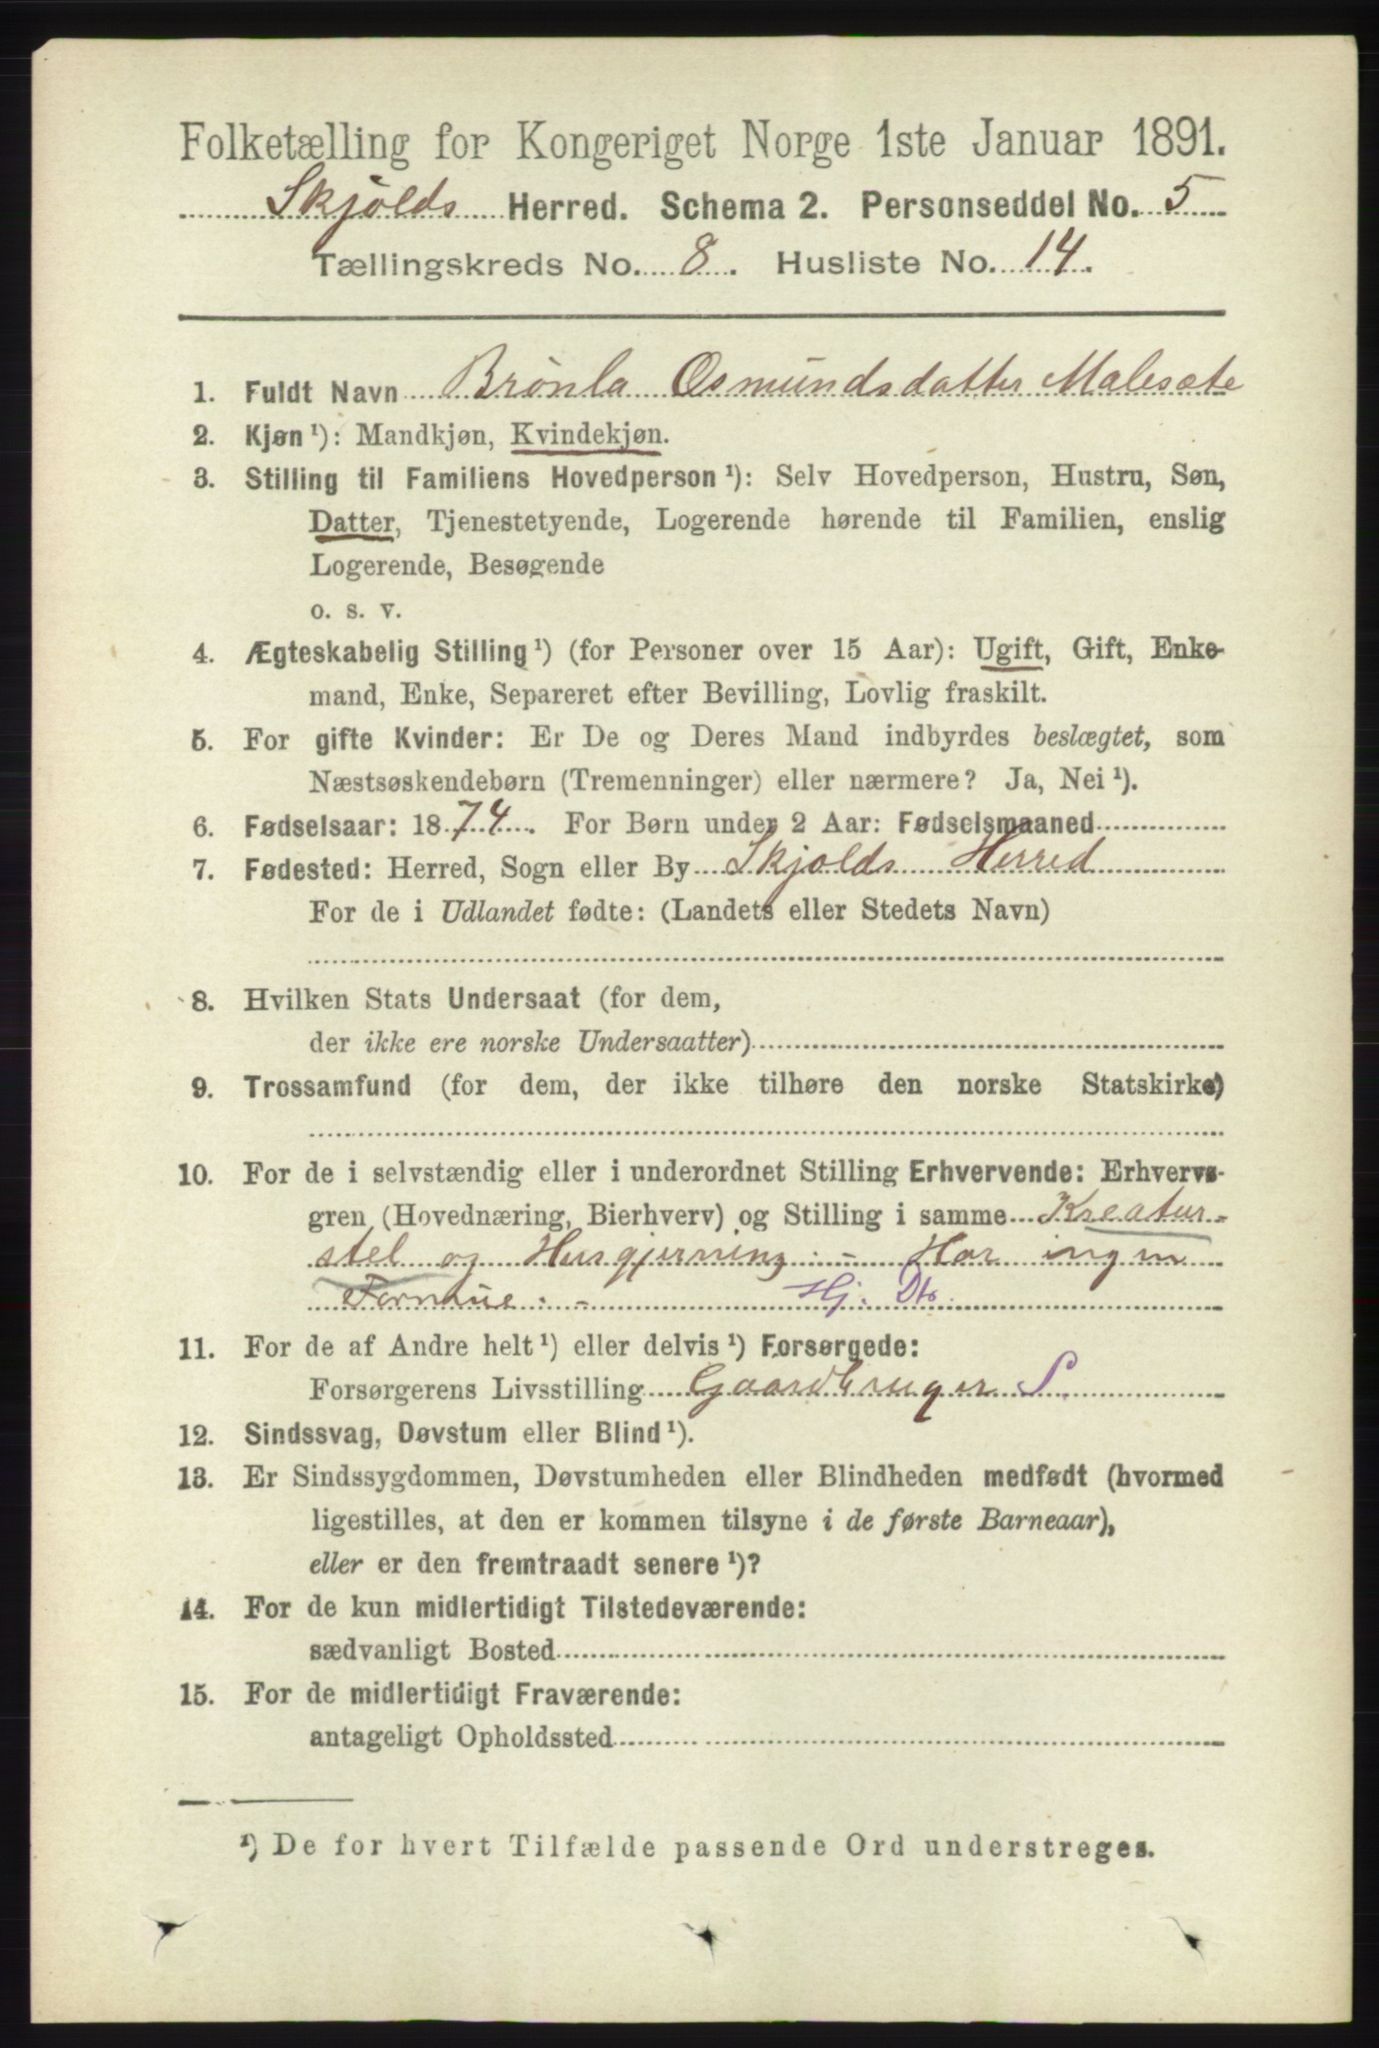 Folketælling for Kongeriget Norge 1ste Januar 1891.
Skjolds Herred. Schema 2. Personseddel No. 5
Tællingskreds No. 8. Husliste No. 14.
1. Fuldt Navn Brønla Osmundsdatter Malesæte
2. Kjøn ¹): Mandkjøn, Kvindekjøn.
3. Stilling til Familiens Hovedperson ¹): Selv Hovedperson, Hustru, Søn,
Datter, Tjenestetyende, Logerende hørende til Familien, enslig
Logerende, Besøgende
o. s. v.
4. Ægteskabelig Stilling ¹) (for Personer over 15 Aar): Ugift, Gift, Enke-
mand, Enke, Separeret efter Bevilling, Lovlig fraskilt.
5. For gifte Kvinder: Er De og Deres Mand indbyrdes beslægtet, som
Næstsøskendebørn (Tremenninger) eller nærmere? Ja, Nei ¹).
6. Fødselsaar: 1874. For Børn under 2 Aar: Fødselsmaaned
7. Fødested: Herred, Sogn eller By Skjolds Herred
For de i Udlandet fødte: (Landets eller Stedets Navn)
8. Hvilken Stats Undersaat (for dem,
der ikke ere norske Undersaatter)
9. Trossamfund (for dem, der ikke tilhøre den norske Statskirke)
10. For de i selvstændig eller i underordnet Stilling Erhvervende: Erhvervs-
gren (Hovednæring, Bierhverv) og Stilling i samme Kreatur-
stel og Husgjerning. - Har ingen
Formue. - Hj. Dtr.
11. For de af Andre helt ¹) eller delvis ¹) Forsørgede:
Forsørgerens Livsstilling Gaardbruger S.
12. Sindssvag, Døvstum eller Blind ¹).
13. Er Sindssygdommen, Døvstumheden eller Blindheden medfødt (hvormed
ligestilles, at den er kommen tilsyne i de første Barneaar),
eller er den fremtraadt senere ¹)?
14. For de kun midlertidigt Tilstedeværende:
sædvanligt Bosted
15. For de midlertidigt Fraværende:
antageligt Opholdssted
¹) De for hvert Tilfælde passende Ord understreges.